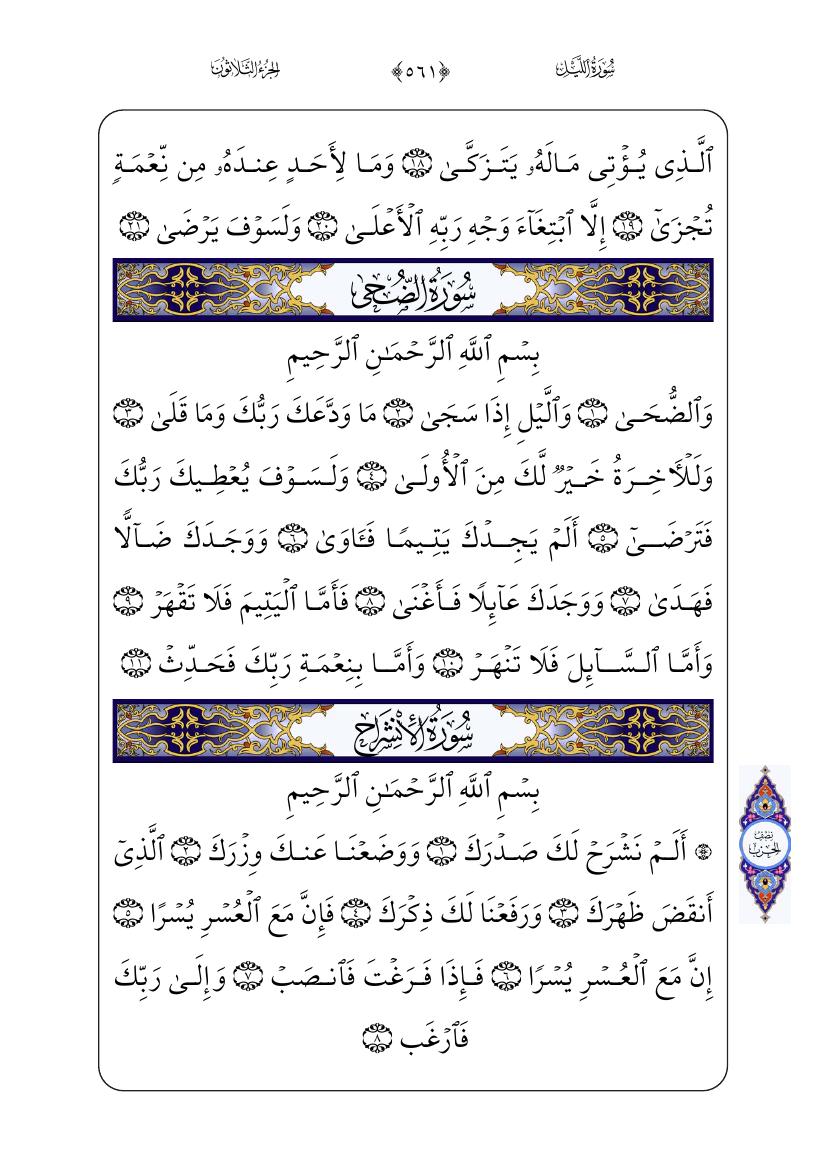 سُورَةُ اللَّيْلِ
﴿٥٦١﴾
الجُزْءُ الثَّلَاثُونَ
ٱلَّذِى يُؤْتِى مَالَهُۥ يَتَزَكَّىٰ ١٨ وَمَا لِأَحَدٍ عِندَهُۥ مِن نِّعْمَةٍ
تُجْزَىٰٓ ١٩ إِلَّا ٱبْتِغَآءَ وَجْهِ رَبِّهِ ٱلْأَعْلَىٰ ٢٠ وَلَسَوْفَ يَرْضَىٰ ٢١
سُورَةُ الضُّحَىٰ
بِسْمِ ٱللَّهِ ٱلرَّحْمَـٰنِ ٱلرَّحِيمِ
وَٱلضُّحَىٰ ١ وَٱلَّيْلِ إِذَا سَجَىٰ ٢ مَا وَدَّعَكَ رَبُّكَ وَمَا قَلَىٰ ٣
وَلَلْأَخِرَةُ خَيْرٌ لَّكَ مِنَ ٱلْأُولَىٰ ٤ وَلَسَوْفَ يُعْطِيكَ رَبُّكَ
فَتَرْضَىٰٓ ٥ أَلَمْ يَجِدْكَ يَتِيمًا فَـَٔاوَىٰ ٦ وَوَجَدَكَ ضَآلًّا
فَهَدَىٰ ٧ وَوَجَدَكَ عَآئِلًا فَأَغْنَىٰ ٨ فَأَمَّا ٱلْيَتِيمَ فَلَا تَقْهَرْ ٩
وَأَمَّا ٱلسَّآئِلَ فَلَا تَنْهَرْ ١٠ وَأَمَّا بِنِعْمَةِ رَبِّكَ فَحَدِّثْ ١١
سُورَةُ الِانْشِرَاحِ
بِسْمِ ٱللَّهِ ٱلرَّحْمَـٰنِ ٱلرَّحِيمِ
۞ أَلَمْ نَشْرَحْ لَكَ صَدْرَكَ ١ وَوَضَعْنَا عَنكَ وِزْرَكَ ٢ ٱلَّذِىٓ
أَنقَضَ ظَهْرَكَ ٣ وَرَفَعْنَا لَكَ ذِكْرَكَ ٤ فَإِنَّ مَعَ ٱلْعُسْرِ يُسْرًا ٥
إِنَّ مَعَ ٱلْعُسْرِ يُسْرًا ٦ فَإِذَا فَرَغْتَ فَٱنصَبْ ٧ وَإِلَىٰ رَبِّكَ
فَٱرْغَب ٨
نِصْفُ
الحِزْبِ